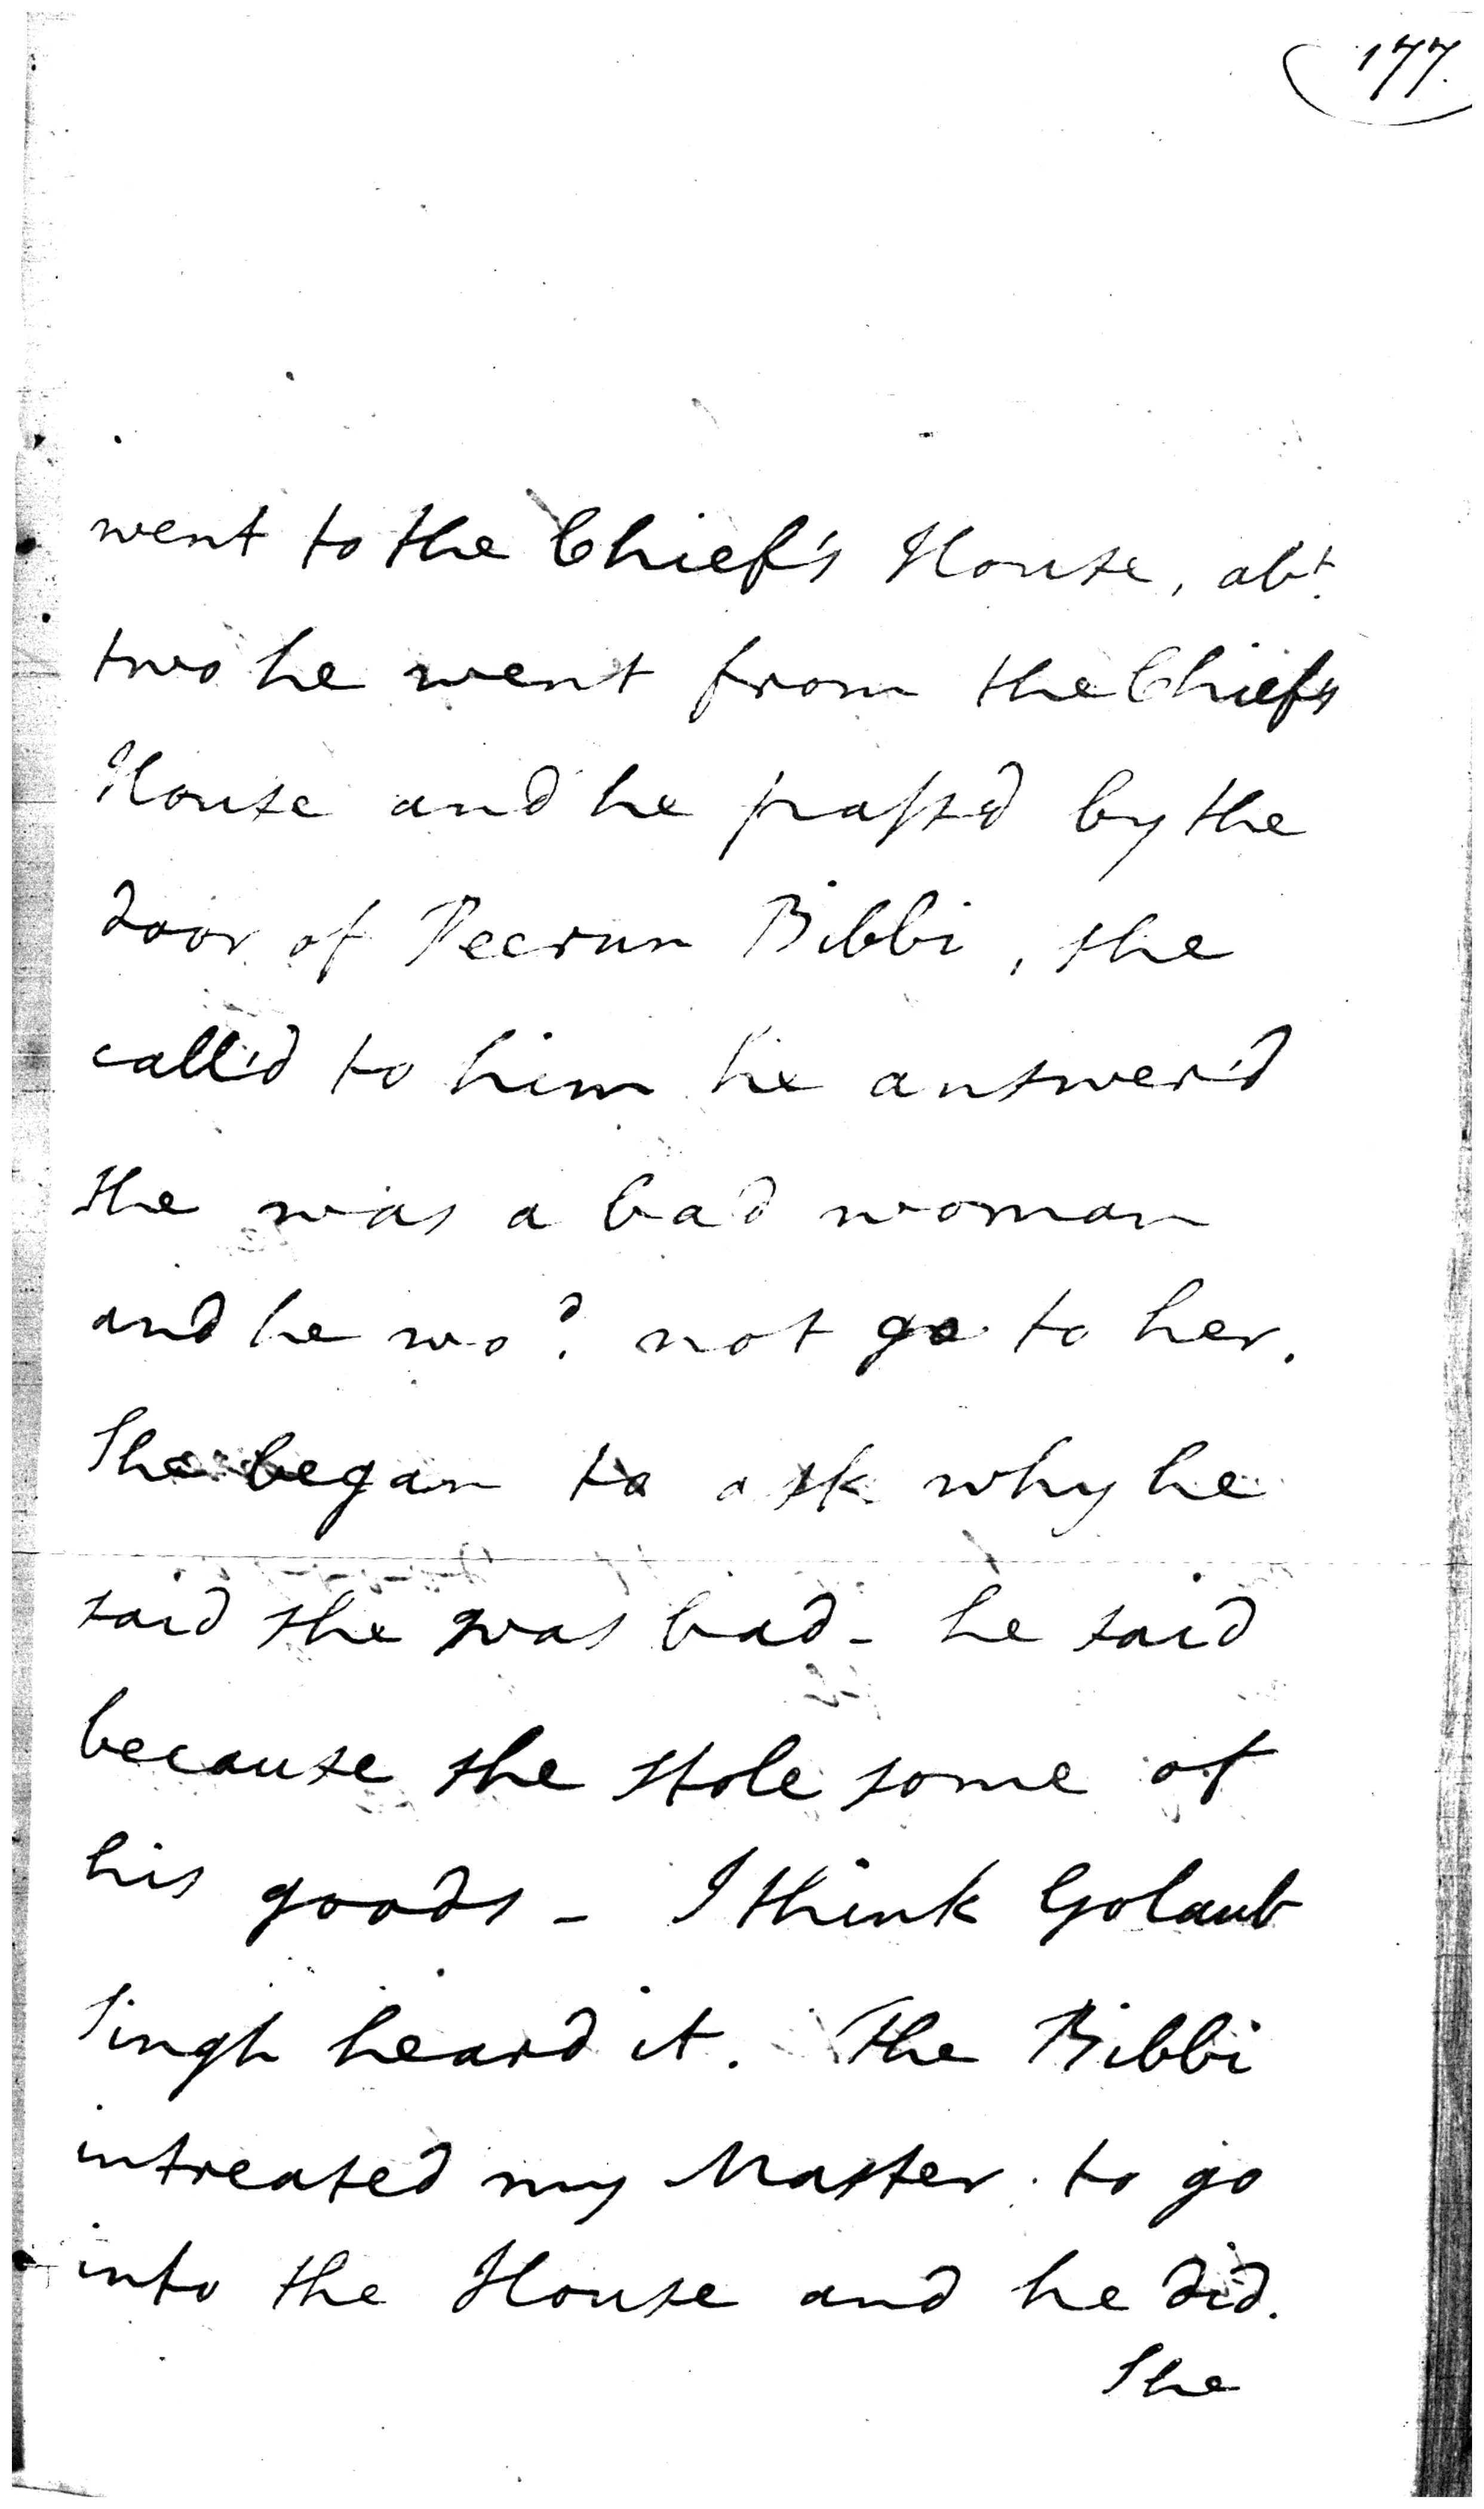 177.
went to the Chief's House, abt.
two he went from the Chiefs
House and he pass'd by the
door of Peerun Bibbi, she
call'd to him he answer'd
she was a bad woman
and he wod. not go to her.
She began to ask why he
said she was bad - he said
because she stole some of
his goods - I think Golaub
Singh heard it. The Bibbi
intreated my Master to go
into the House and he did.
She